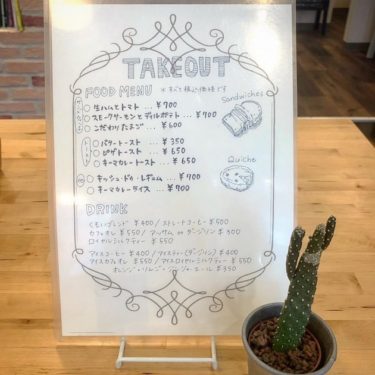 TAKEOUT
FOOD MENU ※すべて税込価格です
生ハムとトマト … ¥700
スモークサーモンとディルポテト … ¥700
こだわりたまご … ¥600
Sandwiches
バタートースト … ¥350
ピザトースト … ¥650
キーマカレートースト … ¥650
Quiche
キッシュ・ドゥ・レギューム … ¥700
キーマカレーライス … ¥700
DRINK
ブレンド ¥400 / ストレートコーヒー ¥500
カフェオレ ¥550 / アッサム or ダージリン ¥500
ロイヤルミルクティー … ¥550
アイスコーヒー ¥400 / アイスティー(ダージリン) ¥400
アイスカフェオレ ¥550 / アイスロイヤルミルクティー ¥550
オレンジ・リンゴ・ジンジャーエール ¥350